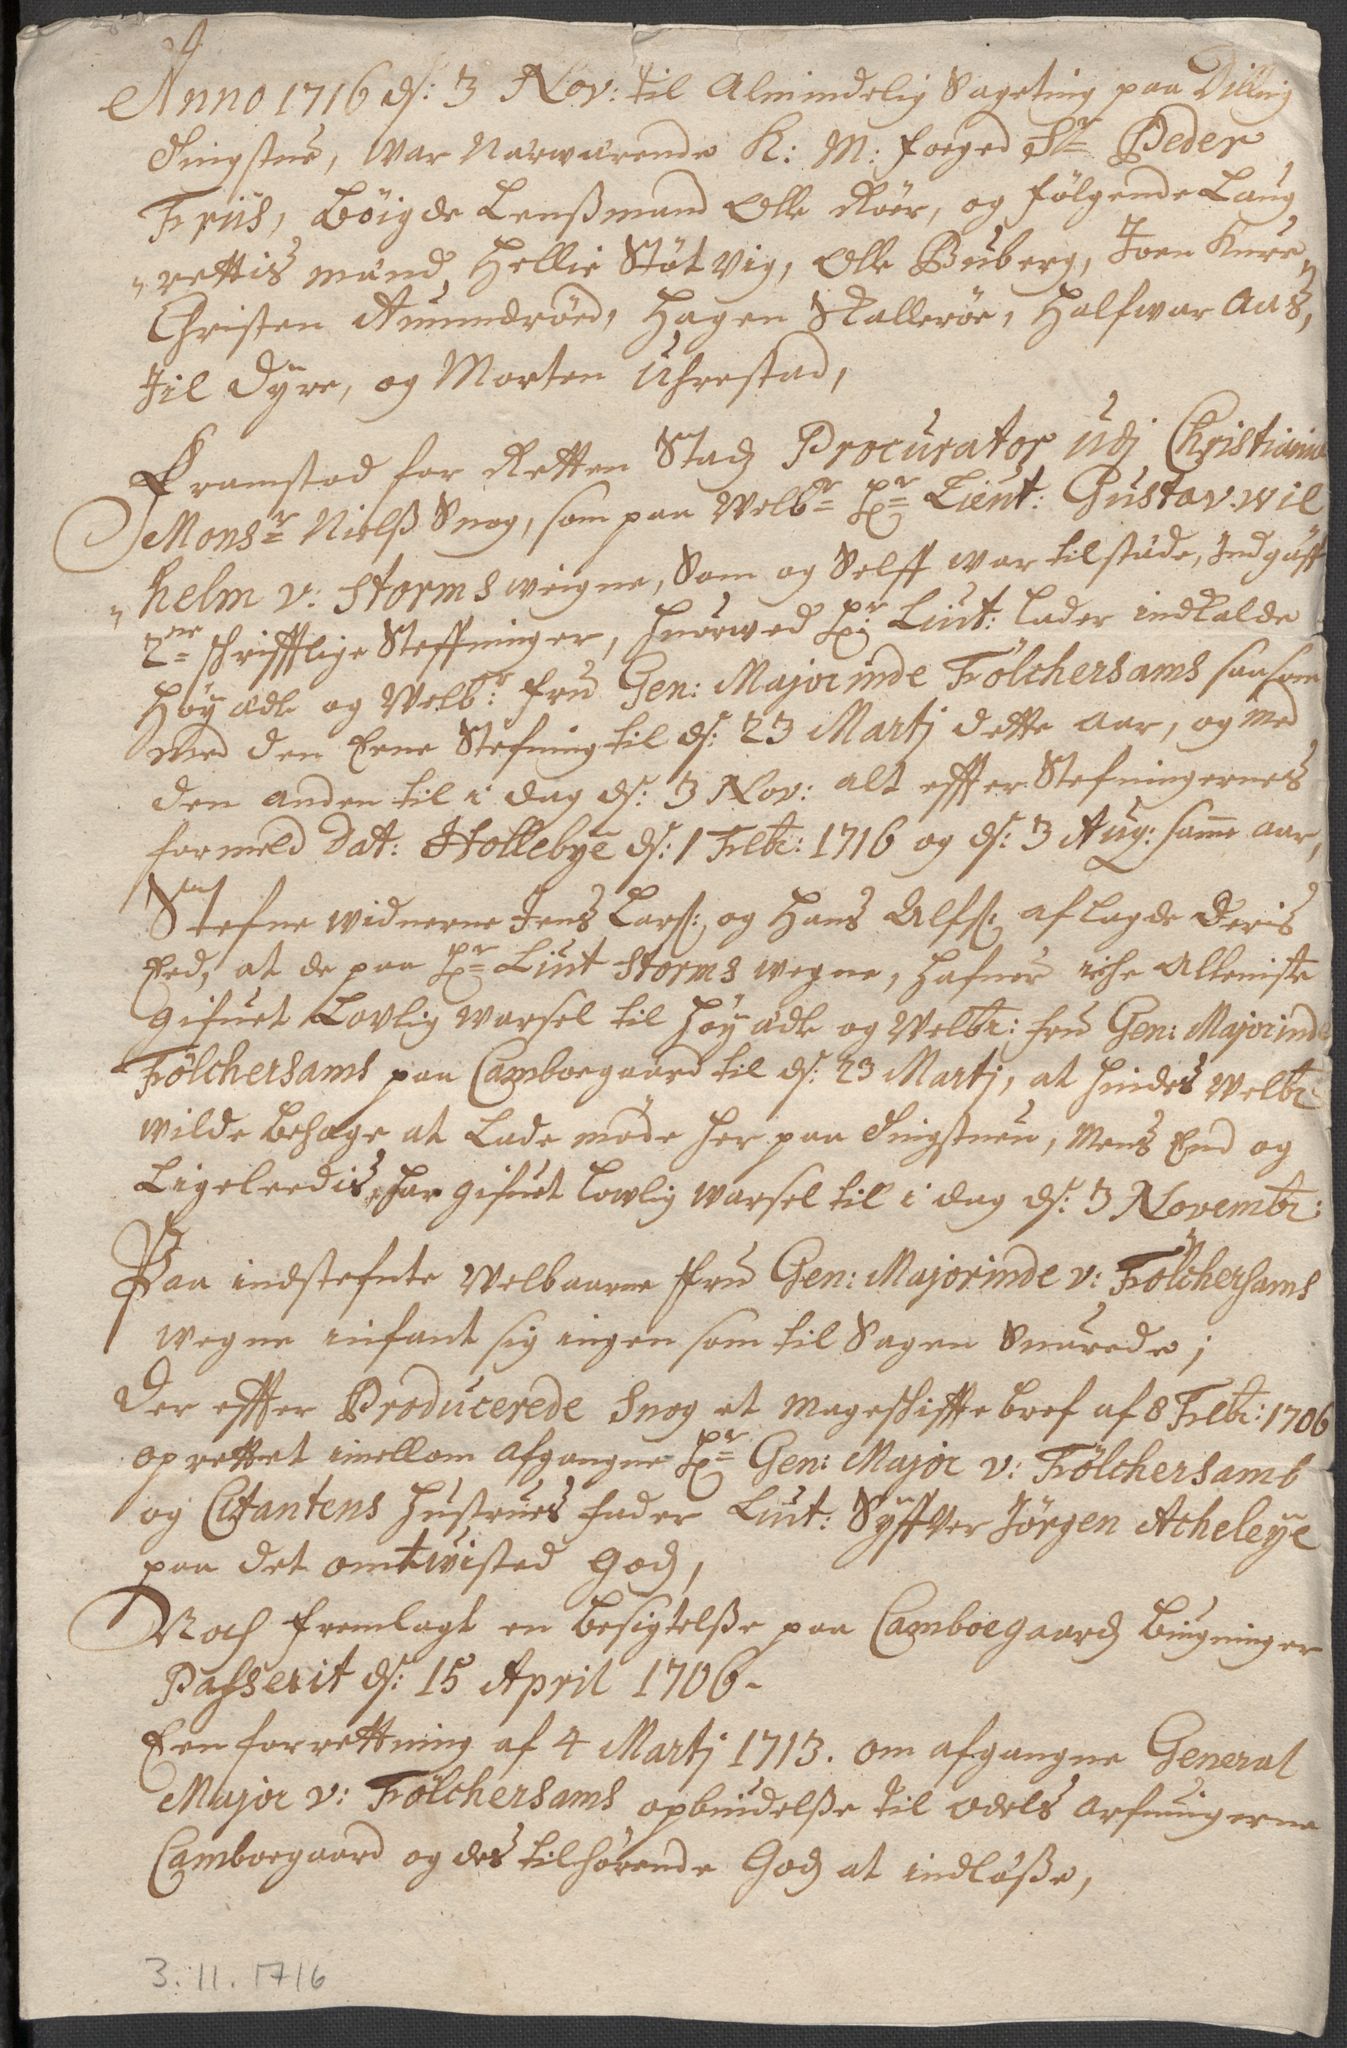 Anno 1716 d: 3 Nov: til Almindelig Sageting paa Dilling
Tingstue, war Nærwærende K: M: foeged Sr Peder
Friis, Böigde Lensßmand Olle Röer, og fölgende Laug
rettis mænd, Hellie Stötvig, Olle Buberg, Joen Kure
Christen Amundröed, Hagen Skalleröe, Halfwar Aas,
Jil Dyre, og Morten Uhrestad,
Framstod for Retten Stadz Procurator udj Christiania
Monsr Nielß Snog, som paa Welbr Hr Lieut: Gustav wil
helm v: Storms weigne, Som og Self war tilstæde, Indgaff
2de schrifftlige Steffninger, hworwed Hr Liut: lader indkalde
Höyædle og Welbr: fru Gen: Majorinde Fölchersams saasom
med den Eene Stefning til d: 23 Martj dette aar, og med
den anden til i dag d: 3 Nov: alt effter Stefningernes
formeld Dat: Hollebye d: 1 Febr: 1716 og d: 3 Aug: samme aar,
Stefne widnerne Jens Lars: og Hans Olfs: aflagde deris
Eed, at de paa Hr Liut Storms wegne, hafuer iche alleniste
gifuet Lovlig warsel til Höyædle og Welbr: fru Gen: Majorinde
Fölchersams paa Camboegaard til d: 23 Martj, at hindes Welbr
wilde behage at lade möde her paa Tingstuen, Mens End og
Ligeleedis har gifuet lowlig warsel til i dag d: 3 Novembr:
Paa indstefnte Welbaarne Fru Gen: Majorinde v: Fölchersams
wegne infant sig ingen som til Sagen Snarede;
Der effter Producerede Snog et mageschifftebref af 8 Febr: 1706
oprettet imellom afgangne Hr Gen: Major v: Fölchersamb
og Citantens hustrues fader Liut: Syffver Jörgen Acheleye
paa det omtwisted Godz,
Noch fremlagt en besigtelße paa Camboegaardz bugninger
Passerit d: 15 April 1706-
Een forrettning af 4 Martj 1713. om afgangne General
Major v: Fölchersams opbudelße til odels arfuingerne
Camboegaard og des tilhörende Godz at indlöße,
3.11.1716